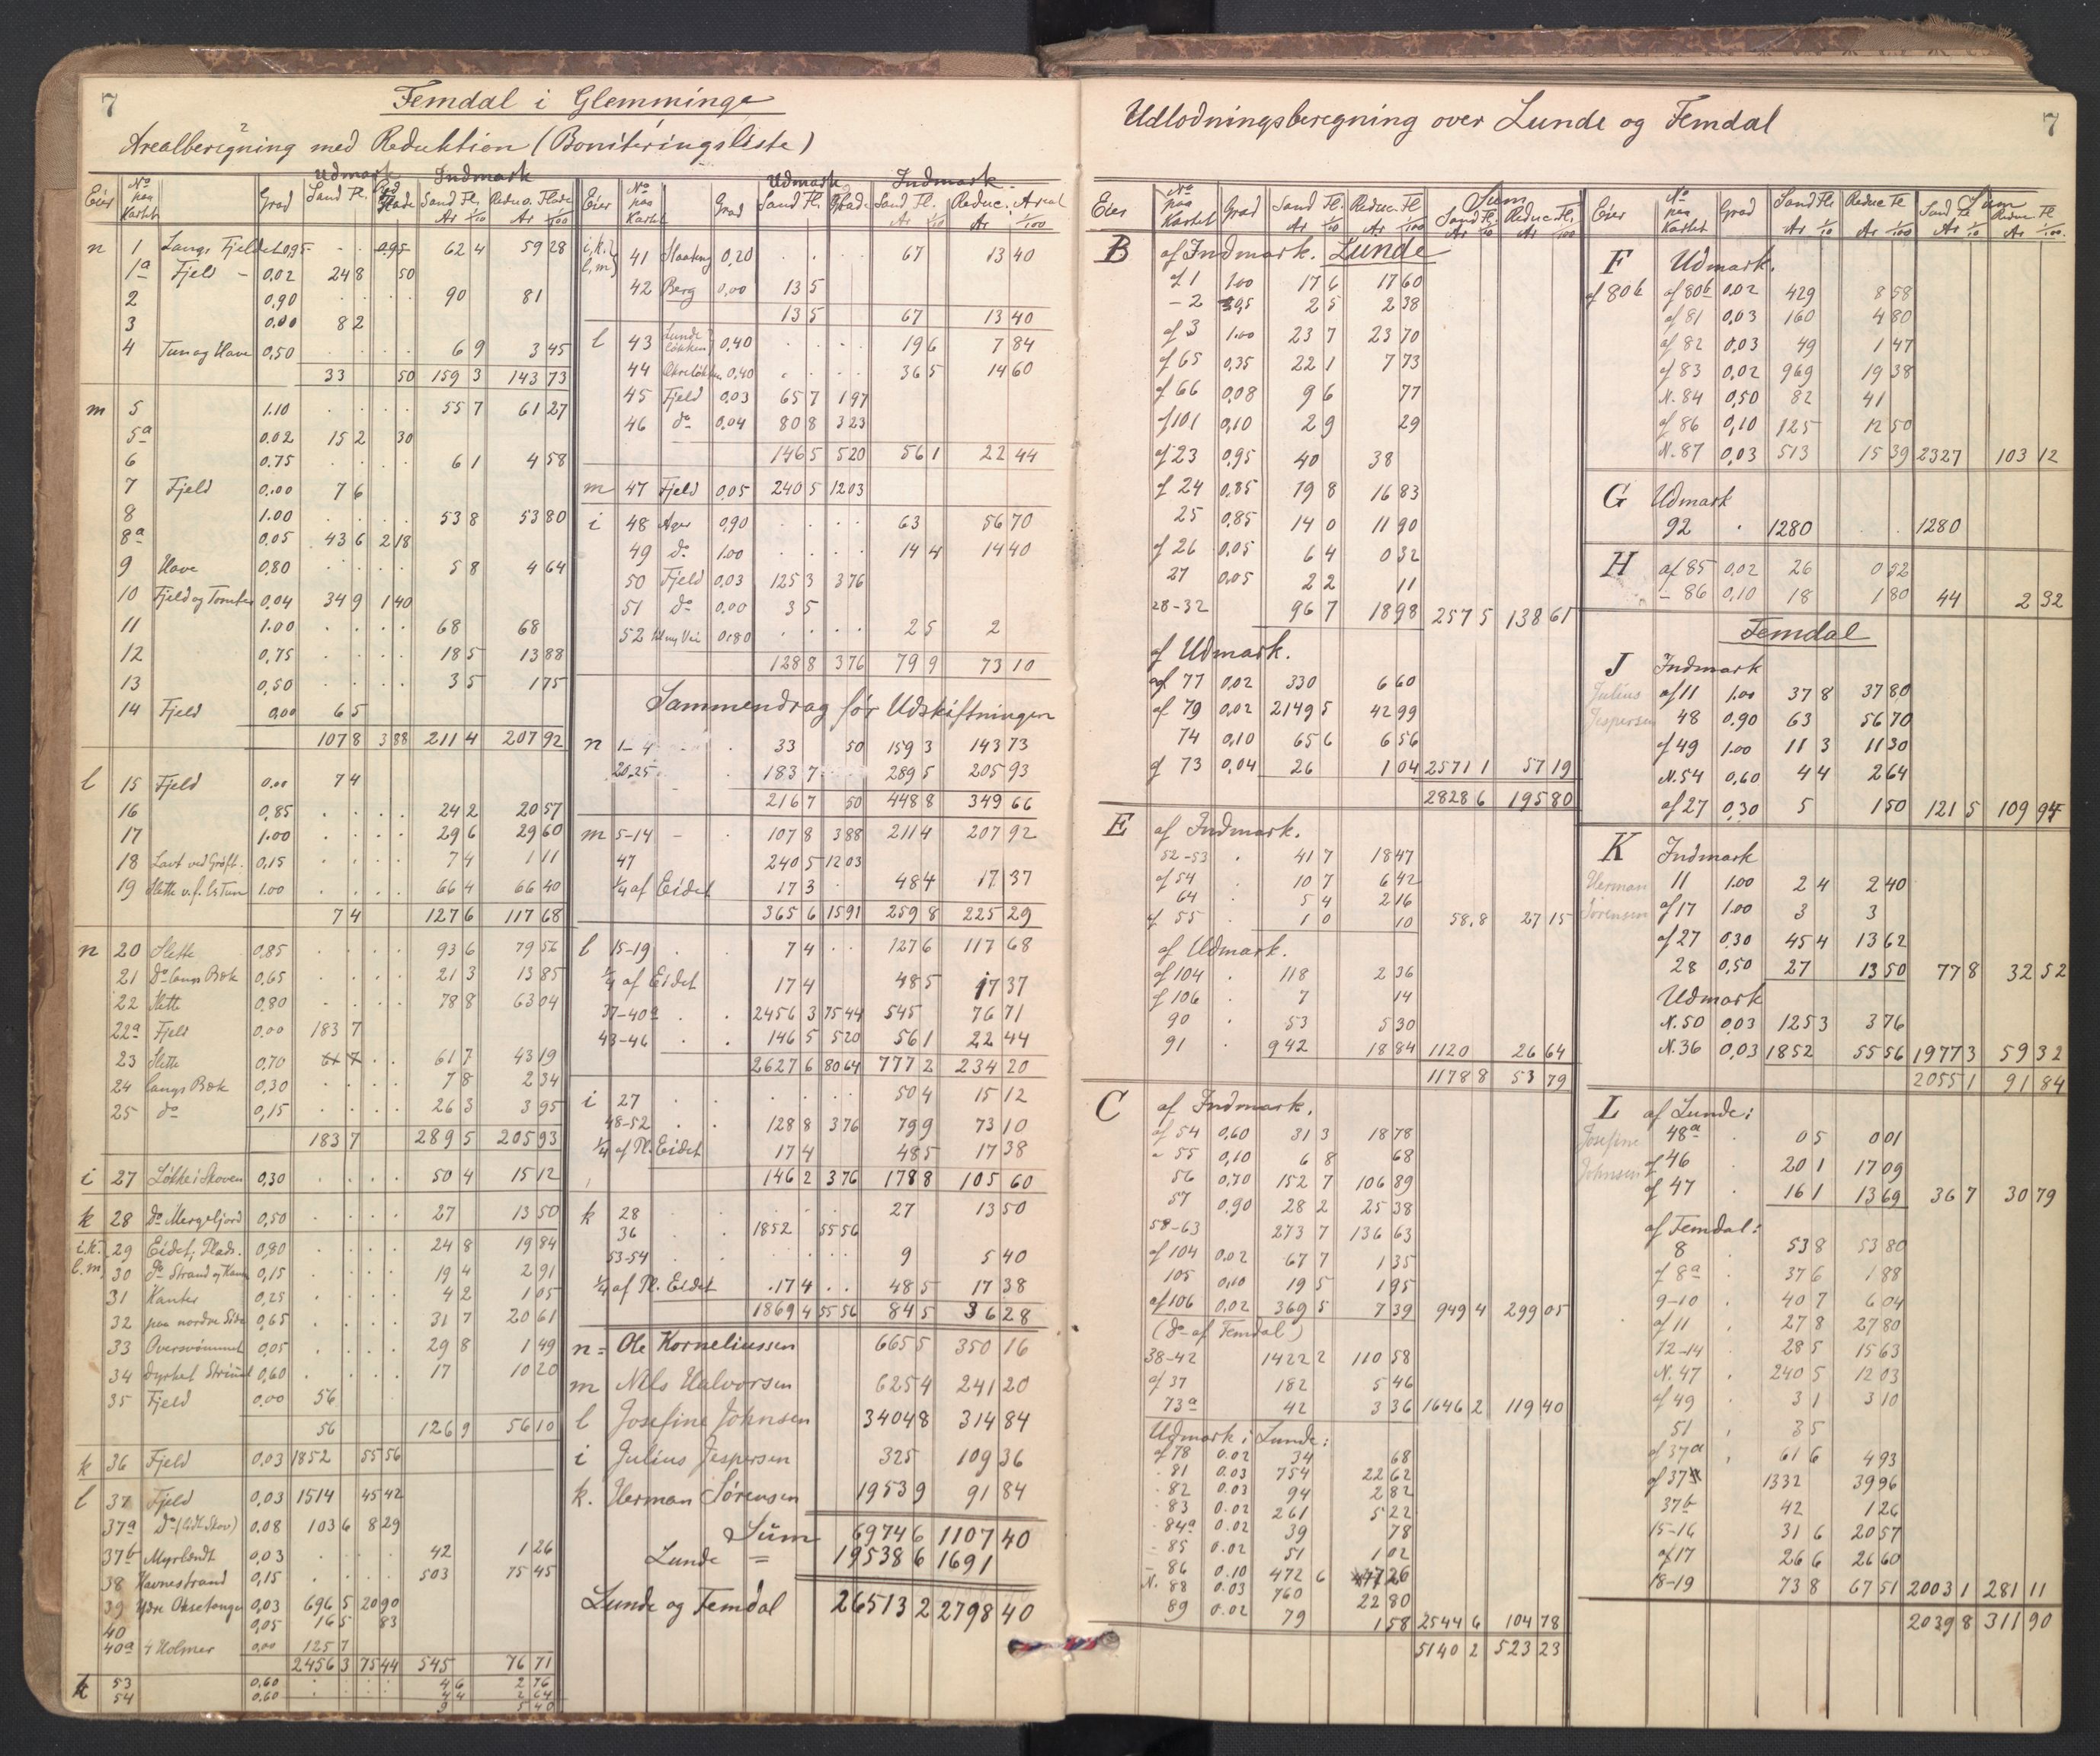 7
Femdal i Glemminge
Arealberegning med Reduktion (Boniteringsliste)
Udmark Indmark
Eier No paa Kartet Grad Sand Fl. Red Flade Sand Fl. Ar 1/10 Reduc. Flade Ar 1/100
n 1 Langs Fjeldet 0,95 . . 0,95 62 4 59 28
1a Fjeld - 0,02 24 8 50
2 0,90 . . . . 90 81
3 0,00 8 2
4 Tun og Have 0,50 . . . . 6 9 3 45
33 50 159 3 143 73
m 5 1.10 . . . . 55 7 61 27
5a 0.02 15 2 30
6 0.75 . . . . 6 1 4 58
7 Fjeld 0.00 7 6
8 1.00 . . . . 53 8 53 80
8a 0.05 43 6 2 18
9 Have 0,80 . . . . 5 8 4 64
10 Fjeld og Tomter 0,04 34 9 1 40
11 1.00 . . . . 68 68
12 0,75 . . . . 18 5 13 88
13 0,50 . . . . 3 5 1 75
14 Fjeld 0,00 6 5
107 8 3 88 211 4 207 92
l 15 Fjeld 0.00 7 4
16 0,85 . . . . 24 2 20 57
17 1.00 . . . . 29 6 29 60
18 Lavt ved Grøft. 0,15 . . . . 7 4 1 11
19 Slette v.f. Tun 1.00 . . . . 66 4 66 40
7 4 127 6 117 68
n 20 Slette 0,85 . . . . 93 6 79 56
21 Do langs Bæk 0,65 . . . . 21 3 13 85
22 Slette 0,80 . . . . 78 8 63 04
22a Fjeld 0.00 183 7
23 Slette 0,70 . . 61 7 43 19
24 langs Bæk 0,30 . . . . 7 8 2 34
25 do 0,15 . . . . 26 3 3 95
183 7 289 5 205 93
i 27 Løkke i Skoven 0,30 . . . . 50 4 15 12
k 28 do Mergeljord 0,50 . . . . 27 13 50
i.k. l.m, 29 Eidet, Plads. 0,80 . . . . 24 8 19 84
30 do Strand og 0,15 . . . . 19 4 2 91
31 Kanter 0,25 . . . . 4 2 1 05
32 paa nordre Side 0,65 . . . . 31 7 20 61
33 Oversvømmet 0,05 . . . . 29 8 1 49
34 Dyrket 0,60 . . . . 17 10 20
35 Fjeld 0.00 56
56 126 9 56 10
k 36 Fjeld 0.03 1852 55 56
l 37 Fjeld 0,03 1514 45 42
37a Do (lidt Skov) 0,08 103 6 8 29
37b Myrlændt 0,03 . . . . 42 1 26
38 Havnestrand 0,15 . . . . 503 75 45
39 Ydre Oksetange 0,03 696 5 20 90
40 0,05 16 5 83
40a 4 Holmer 0,00 125 7
2456 3 75 44 545 76 71
k 53 0,60 4 6 2 76
54 0,60 4 4 2 64
9 5 40
Udmark Indmark
Eier No paa Kartet Grad Sand Fl. Flade Sand Fl. Ar 1/10 Reduc. Areal Ar 1/100
i,k. l,m 41 0,20 . . . . 67 13 40
42 Berg 0,00 13 5
13 5 67 13 40
l 43 Lunde løkken 0,40 . . . . 19 6 7 84
44 0,40 . . . . 36 5 14 60
45 Fjeld 0,03 65 7 1 97
46 do 0,04 80 8 3 23
146 5 5 20 56 1 22 44
m 47 Fjeld 0,05 240 5 12 03
i 48 Ager 0,90 . . . . 63 56 70
49 do 1.00 . . . . 14 4 14 40
50 Fjeld 0,03 125 3 3 76
51 do 0,00 3 5
52 Vei 0,80 . . . . 2 5 2
128 8 3 76 79 9 73 10
Sammendrag før Udskiftningen
n 1-4 33 50 159 3 143 73
20-25 183 7 289 5 205 93
216 7 50 448 8 349 66
m 5-14 - . 107 8 3 88 211 4 207 92
47 240 5 12 03
1/4 af Eidet 17 3 48 4 17 37
365 6 15 91 259 8 225 29
l 15-19 . . 7 4 . . 127 6 117 68
1/4 af Eidet 17 4 48 5 17 37
37-40a . . 2456 3 75 44 545 76 71
43-46 . . 146 5 5 20 56 1 22 44
2627 6 80 64 777 2 234 20
i 27 . . . . . . 50 4 15 12
48-52 . . 128 8 3 76 79 9 73 10
1/4 af Pl. Eidet 17 4 48 5 17 38
146 2 3 76 178 8 105 60
k 28 27 13 50
36 1852 55 56
53-54 9 5 40
1/4 af Pl. Eidet 17 4 . . 48 5 17 38
1869 4 55 56 84 5 36 28
n = Ole Korneliussen 665 5 350 16
m Nels Halvorsen 625 4 241 20
l Josefine Johnsen 3404 8 314 84
i Julius Jespersen 325 109 36
k. Herman Sørensen 1953 9 91 84
Sum 6974 6 1107 40
Lunde = 19538 6 1691
Lunde og Femdal 26513 2 2798 40
7
Udlodningsberegning over Lunde og Femdal
Eier No paa Kartet Grad Sand Fl. Ar 1/10 Reduc. Fl Ar 1/100 Sum Sand Fl. Ar 1/10 Reduc. Fl. Ar 1/100
B af Indmark. Lunde
af 1 1.00 17 6 17 60
- 2 0,95 2 5 2 38
af 3 1.00 23 7 23 70
af 65 0,35 22 1 7 73
af 66 0,08 9 6 77
af 101 0,10 2 9 29
af 23 0,95 40 38
af 24 0,85 19 8 16 83
25 0,85 14 0 11 90
af 26 0,05 6 4 0 32
27 0,05 2 2 11
28-32 96 7 18 98 257 5 138 61
af Udmark.
af 77 0,02 330 6 60
af 79 0,02 2149 5 42 99
74 0,10 65 6 6 56
af 73 0,04 26 1 04 2571 1 57 19
2828 6 195 80
E af Indmark.
52-53 . 41 7 18 47
af 54 . 10 7 6 42
64 . 5 4 2 16
af 55 . 1 0 10 58,8 27 15
af Udmark.
af 104 . 118 2 36
af 106 . 7 14
90 . 53 5 30
91 . 942 18 84 1120 26 64
1178 8 53 79
C af Indmark.
af 54 0,60 31 3 18 78
" 55 0,10 6 8 68
56 0,70 152 7 106 89
57 0,90 28 2 25 38
58-63 273 7 136 63
af 104 0,02 67 7 1 35
105 0,10 19 5 1 95
af 106 0,02 369 5 7 39 949 4 299 05
(do af Femdal)
38-42 1422 2 110 58
af 37 182 5 46
73a 42 3 36 1646 2 119 40
Udmark i Lunde:
af 78 0.02 34 68
. 81 0.03 754 22 62
. 82 0.03 94 2 82
. 83 0.02 261 5 22
. 84a 0.02 39 78
- 85 0.02 51 1 02
- 86 0.10 472 6 47 26
N. 88 0.03 760 22 80
89 0.02 79 1 58 2544 6 104 78
5140 2 523 23
Eier No paa Kartet Grad Sand Fl. Ar 1/10 Reduc Fl Ar 1/100 Sum Sand Fl Ar 1/10 Reduc. Fl Ar 1/100.
F Udmark.
af 80b af 80b 0,02 429 8 58
af 81 0,03 160 4 80
af 82 0,03 49 1 47
af 83 0,02 969 19 38
N. 84 0,50 82 41
af 86 0,10 125 12 50
N. 87 0,03 513 15 39 2327 103 12
G Udmark
92 . 1280 . . 1280
H af 85 0,02 26 0 52
- 86 0,10 18 1 80 44 2 32
Femdal
J Indmark
Julius Jespersen af 11 1.00 37 8 37 80
48 0.90 63 56 70
af 49 1.00 11 3 11 30
N. 54 0,60 4 4 2 64
af 27 0,30 5 1 50 121 5 109 94
K Indmark
Herman Sørensen 11 1.00 2 4 2 40
af 17 1.00 3 3
af 27 0,30 45 4 13 62
28 0,50 27 13 50 77 8 32 52
Udmark
N. 50 0,03 125 3 3 76
N. 36 0,03 1852 55 56 1977 3 59 32
2055 1 91 84
L af Lunde:
Josefine Johnsen 48a . 0 5 0 01
af 46 20 1 17 09
af 47 . 16 1 13 69 36 7 30 79
af Femdal:
8 . 53 8 53 80
af 8a . 37 6 1 88
9-10 . 40 7 6 04
af 11 . 27 8 27 80
12-14 28 5 15 63
N. 47 . 240 5 12 03
af 49 . 3 1 3 10
51 , 3 5
af 37a , 61 6 4 93
af 37 1332 39 96
37b 42 1 26
15-16 31 6 20 57
af 17 26 6 26 60
18-19 73 8 67 51 2003 1 281 11
2039 8 311 90